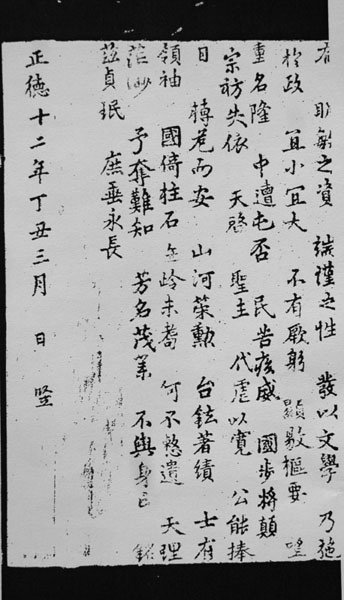 有 明敏之資 端謹之性 發以文學 乃施
於政 宜小宜大 不有厥躬 顯敭樞要 望
重名隆 中遭屯否 民告疾威 國步將顛
宗祊失依 天啓 聖主 代虐以寬 公能捧
日 轉危而安 山河策勳 台鉉著績 士有
領袖 國倚柱石 年齡未耆 何不憗遺 天理
茫渺 予奪難知 芳名茂業 不與身亡 銘
玆貞珉 庶垂永長
正德十二年丁丑三月 日 竪